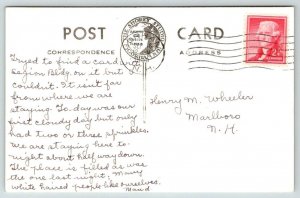 POST CARD
CORRESPONDENCE
ADDRESS
Tryed to find a card of
Legion Bldg. on it but
couldn't. It isn't far
from where we are
staying. To-day was our
first cloudy day but only
had two or three sprinkles.
We are staying here to
night about half way down.
The place is filled as was
the one last night, Many
white haired people like ourselves.
Maud
Henry M. Wheeler
Marlboro
N. H.